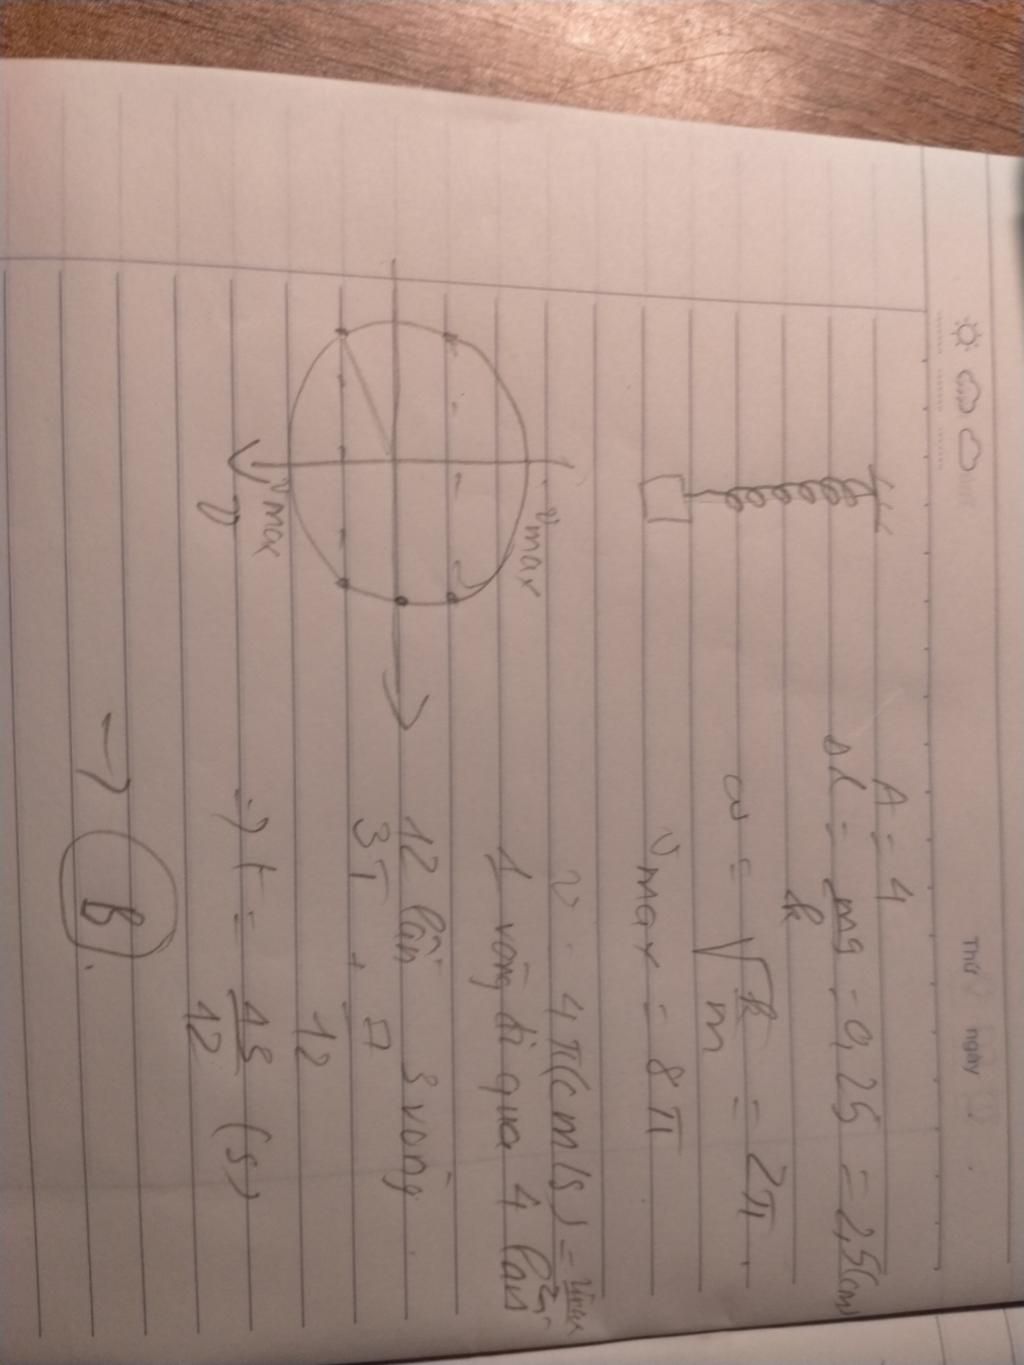 Thứ ngày
A = 4
Δl = mg/k = 0,25 = 2,5(cm)
ω = √k/m = 2π
vmax = 8π
v = 4π(cm/s) = vmax/2
1 vòng đi qua 4 lần
12 lần 3 vòng
3T +
12
vmax
vmax
v
→ t = /12 (s)
→ B.